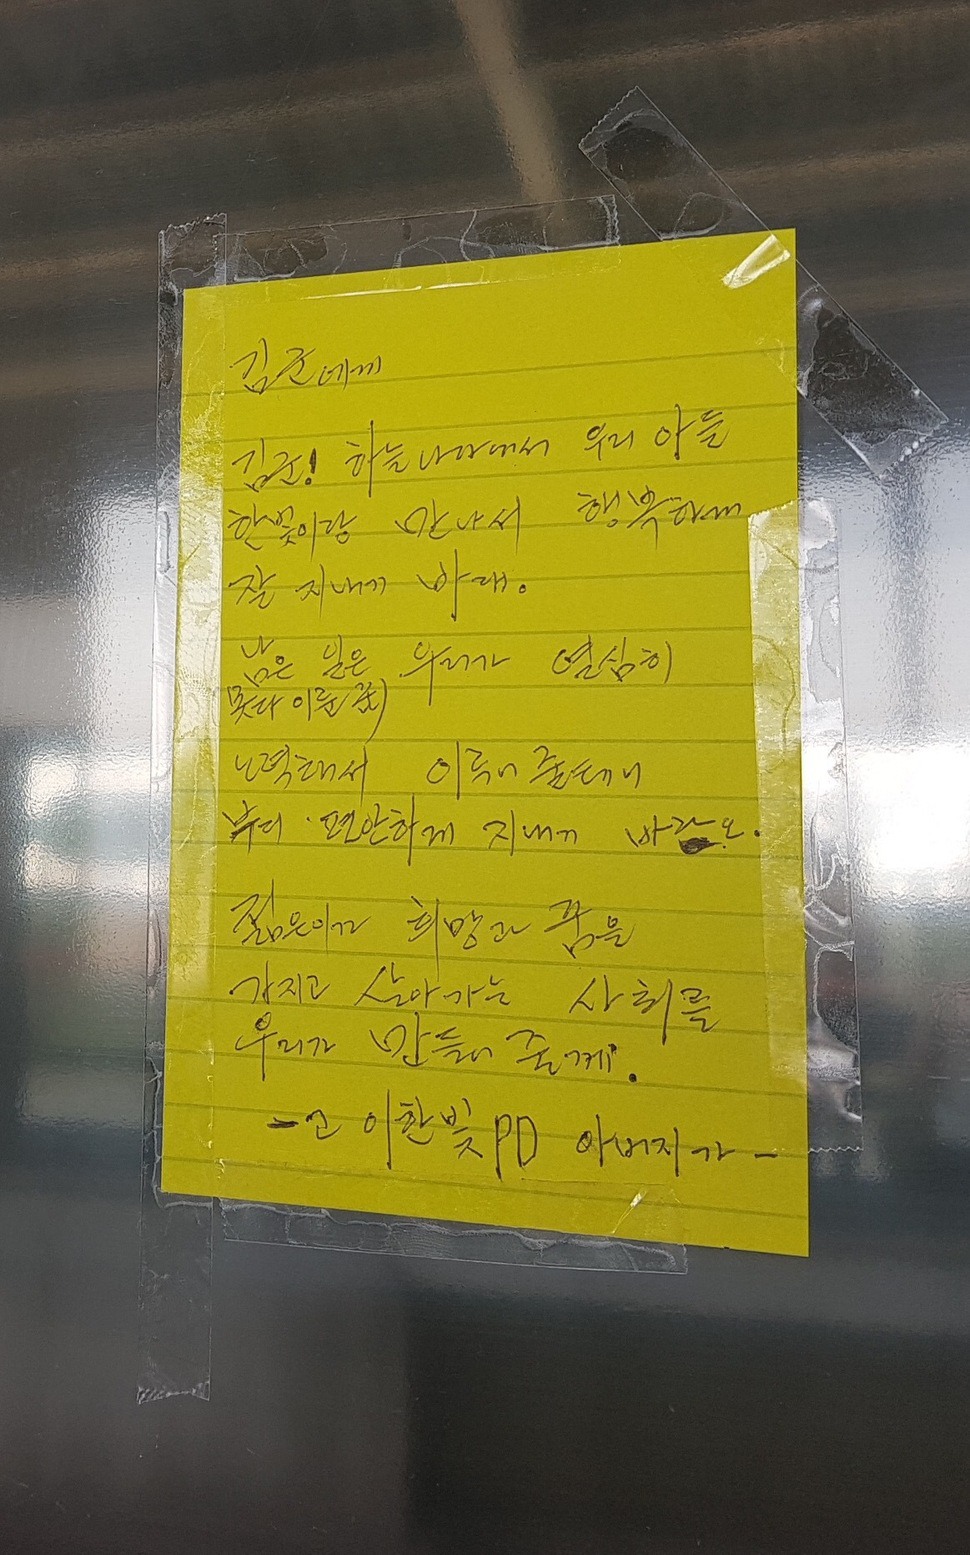 김군에게
김군! 하늘나라에서 우리 아들
한빛이랑 만나서 행복하게
잘 지내기 바래.
남은 일은 우리가 열심히
못다 이룬 꿈)
노력해서 이루어 줄테니
부디 편안하게 지내기 바라오.
젊은이가 희망과 꿈을
가지고 살아가는 사회를
우리가 만들어 줄께.
-고 이한빛PD 아버지가-